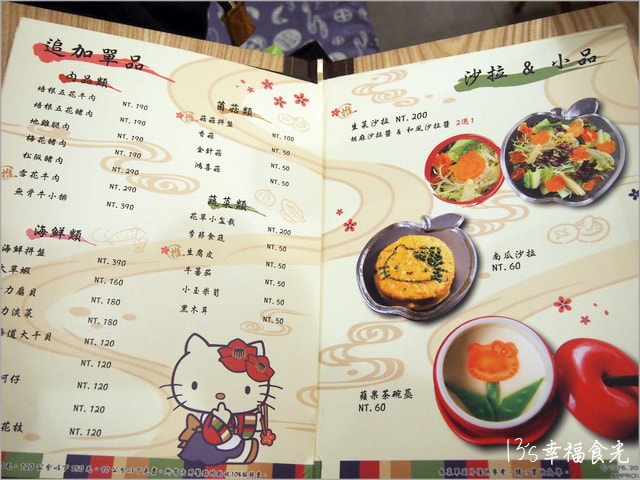 追加單品
肉品類
培根五花牛肉 NT.190
培根五花豬肉 NT.190
地雞腿肉 NT.190
梅花豬肉 NT.190
松阪豬肉 NT.290
推 雪花牛肉 NT.290
無骨牛小排 NT.390
海鮮類
海鮮拼盤 NT.390
大草蝦 NT.160
力扇貝 NT.180
力淡菜 NT.180
道大干貝 NT.120
NT.120
蚵仔 NT.120
花枝 NT.120
菌菇類
推 菇菇拼盤 NT.100
香菇 NT.50
金針菇 NT.50
鴻喜菇 NT.50
蔬菜類
花草小盆栽 NT.200
季節食蔬 NT.50
推 生腐皮 NT.50
牛蕃茄 NT.50
小玉米筍 NT.50
黑木耳 NT.50
沙拉 & 小品
推 生菜沙拉 NT.200
胡麻沙拉醬 & 和風沙拉醬 2選1
南瓜沙拉
NT.60
蘋果茶碗蒸
NT.60
13's幸福食光